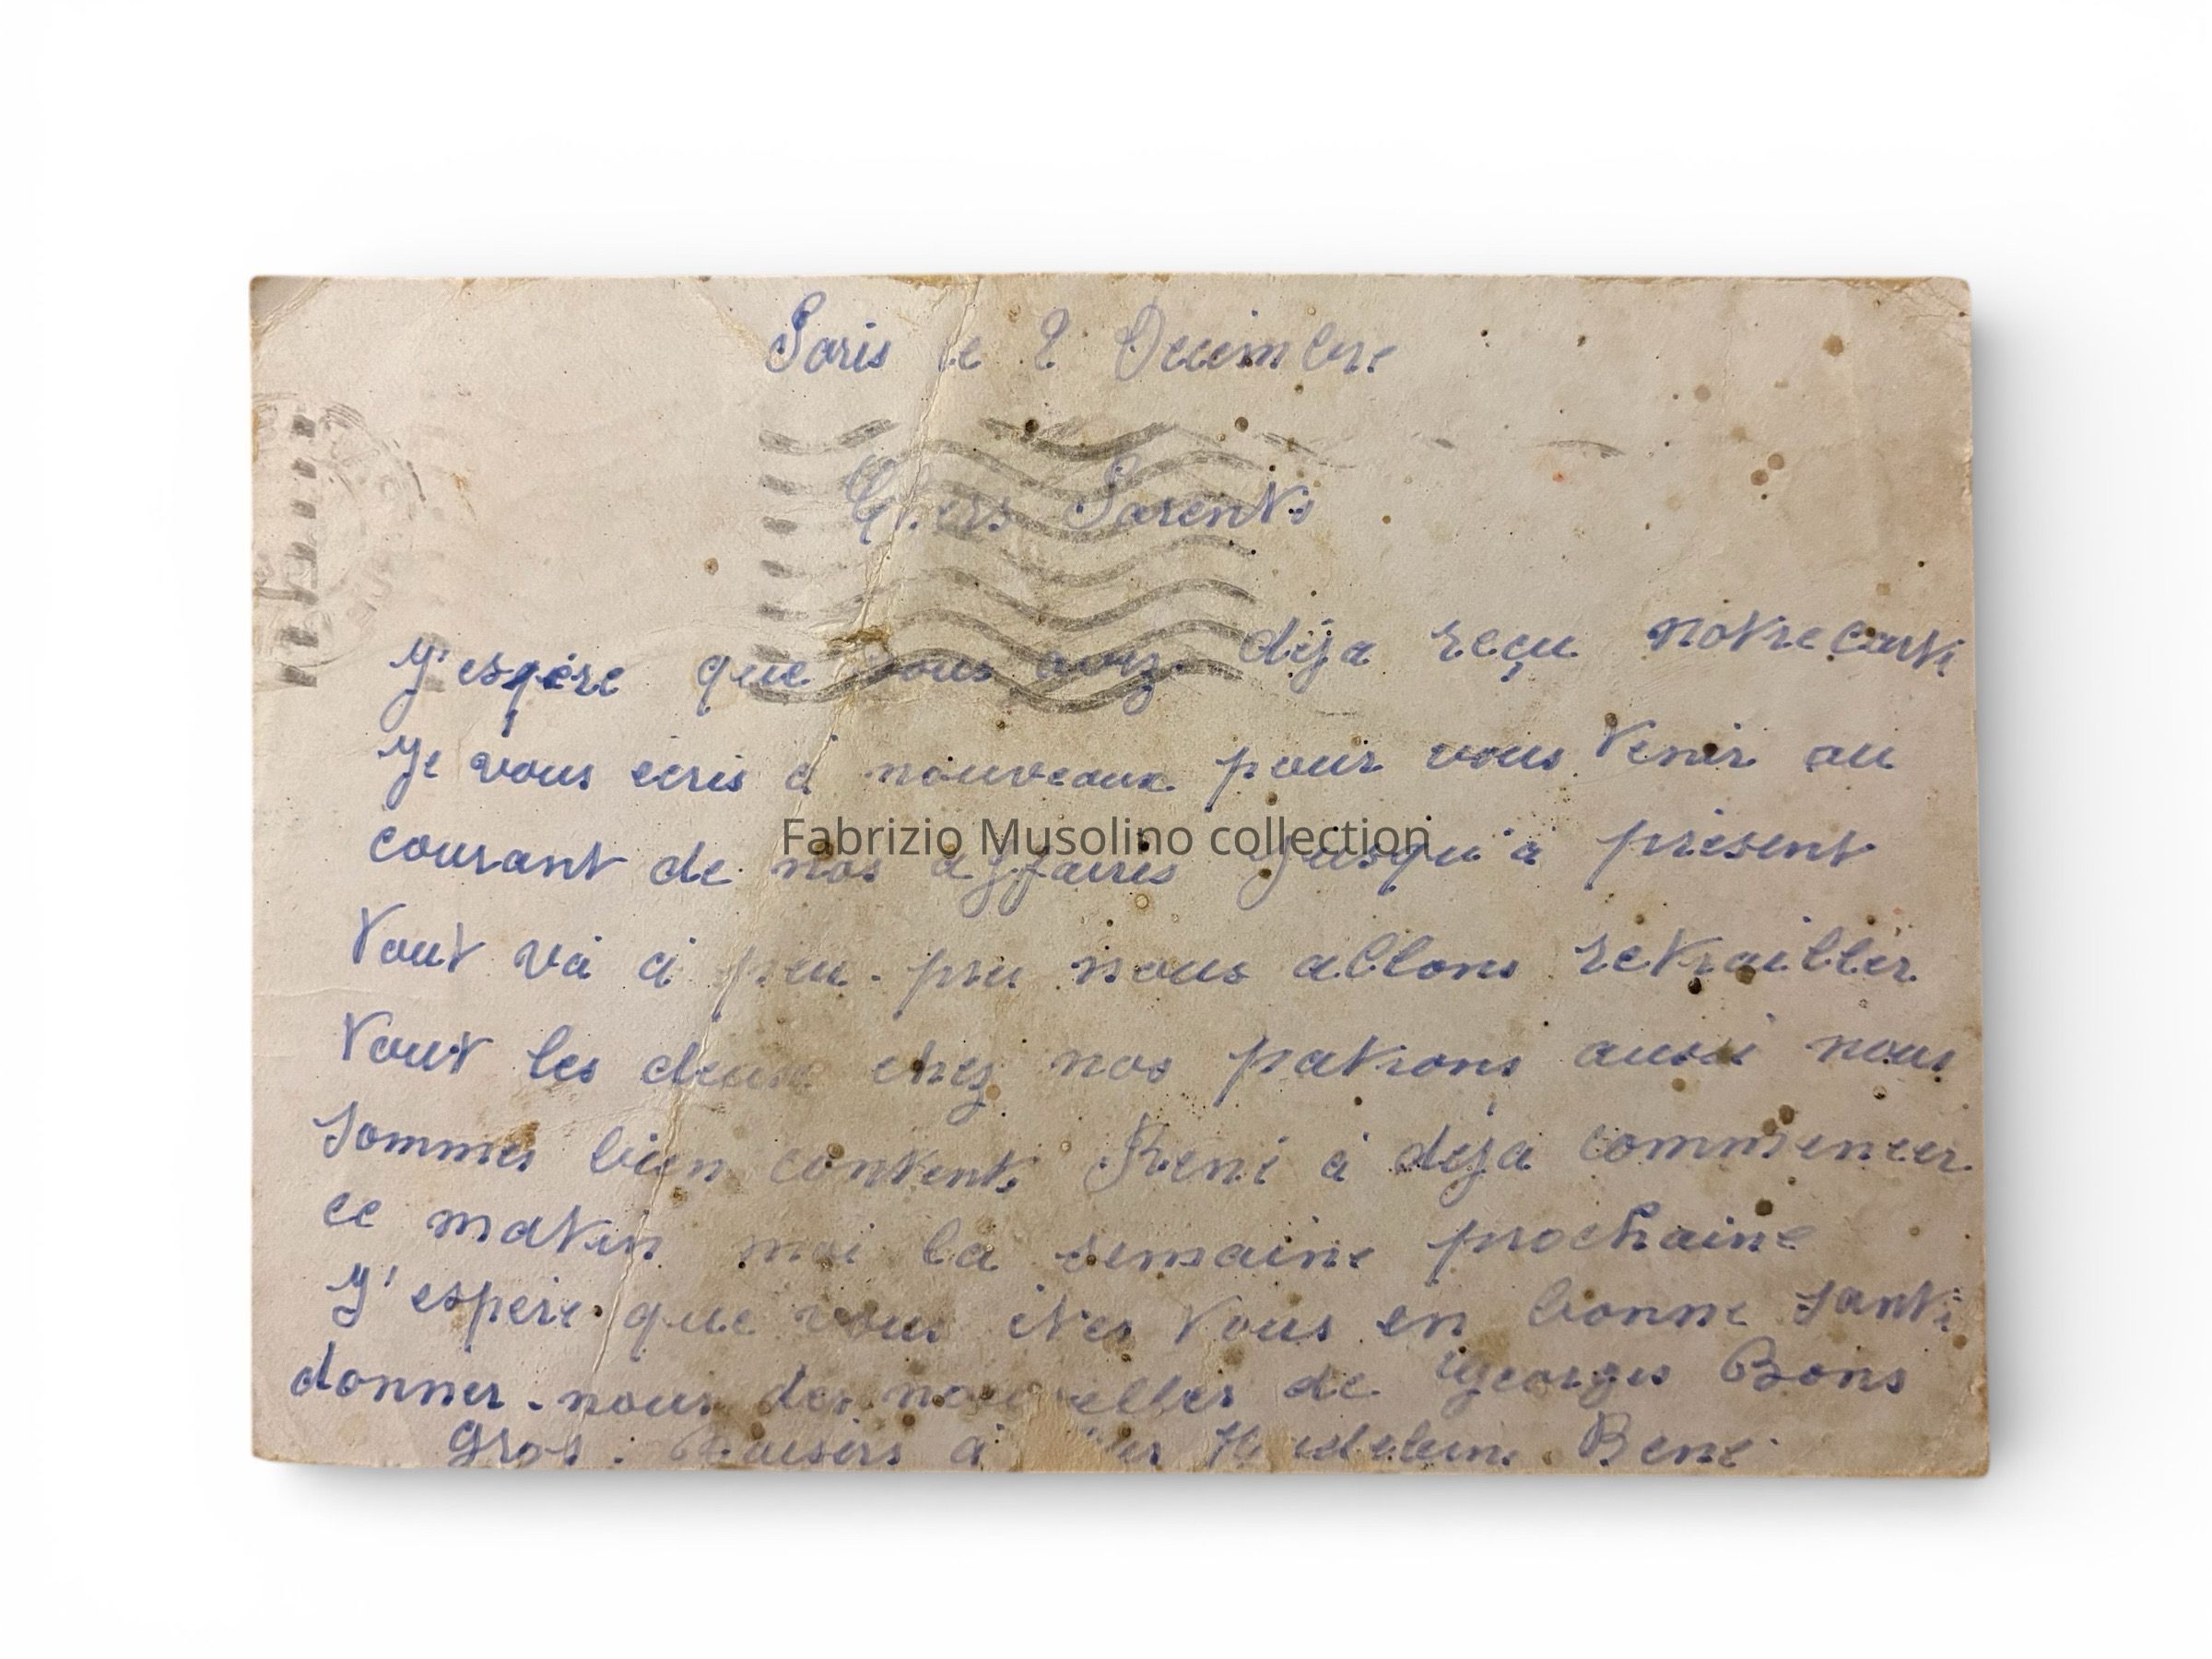 Paris le 2 Decembre
Chers Parents
J'espére que vous avez déja reçu notre carte
Je vous ecris à nouveaux pour vous tenir au
Fabrizio Musolino collection
courant de nos affaires Jusqu'à présent
tout và à peu-pres nous allons retrailler
tout les deux chez nos patrons aussi nous
sommes bien contents René à déja commencer
ce matin moi la semaine prochaine
J'espere que vous êtes tous en bonne santé
donner-nous des nouvelles de Georges Bons
Gros Baisers à René